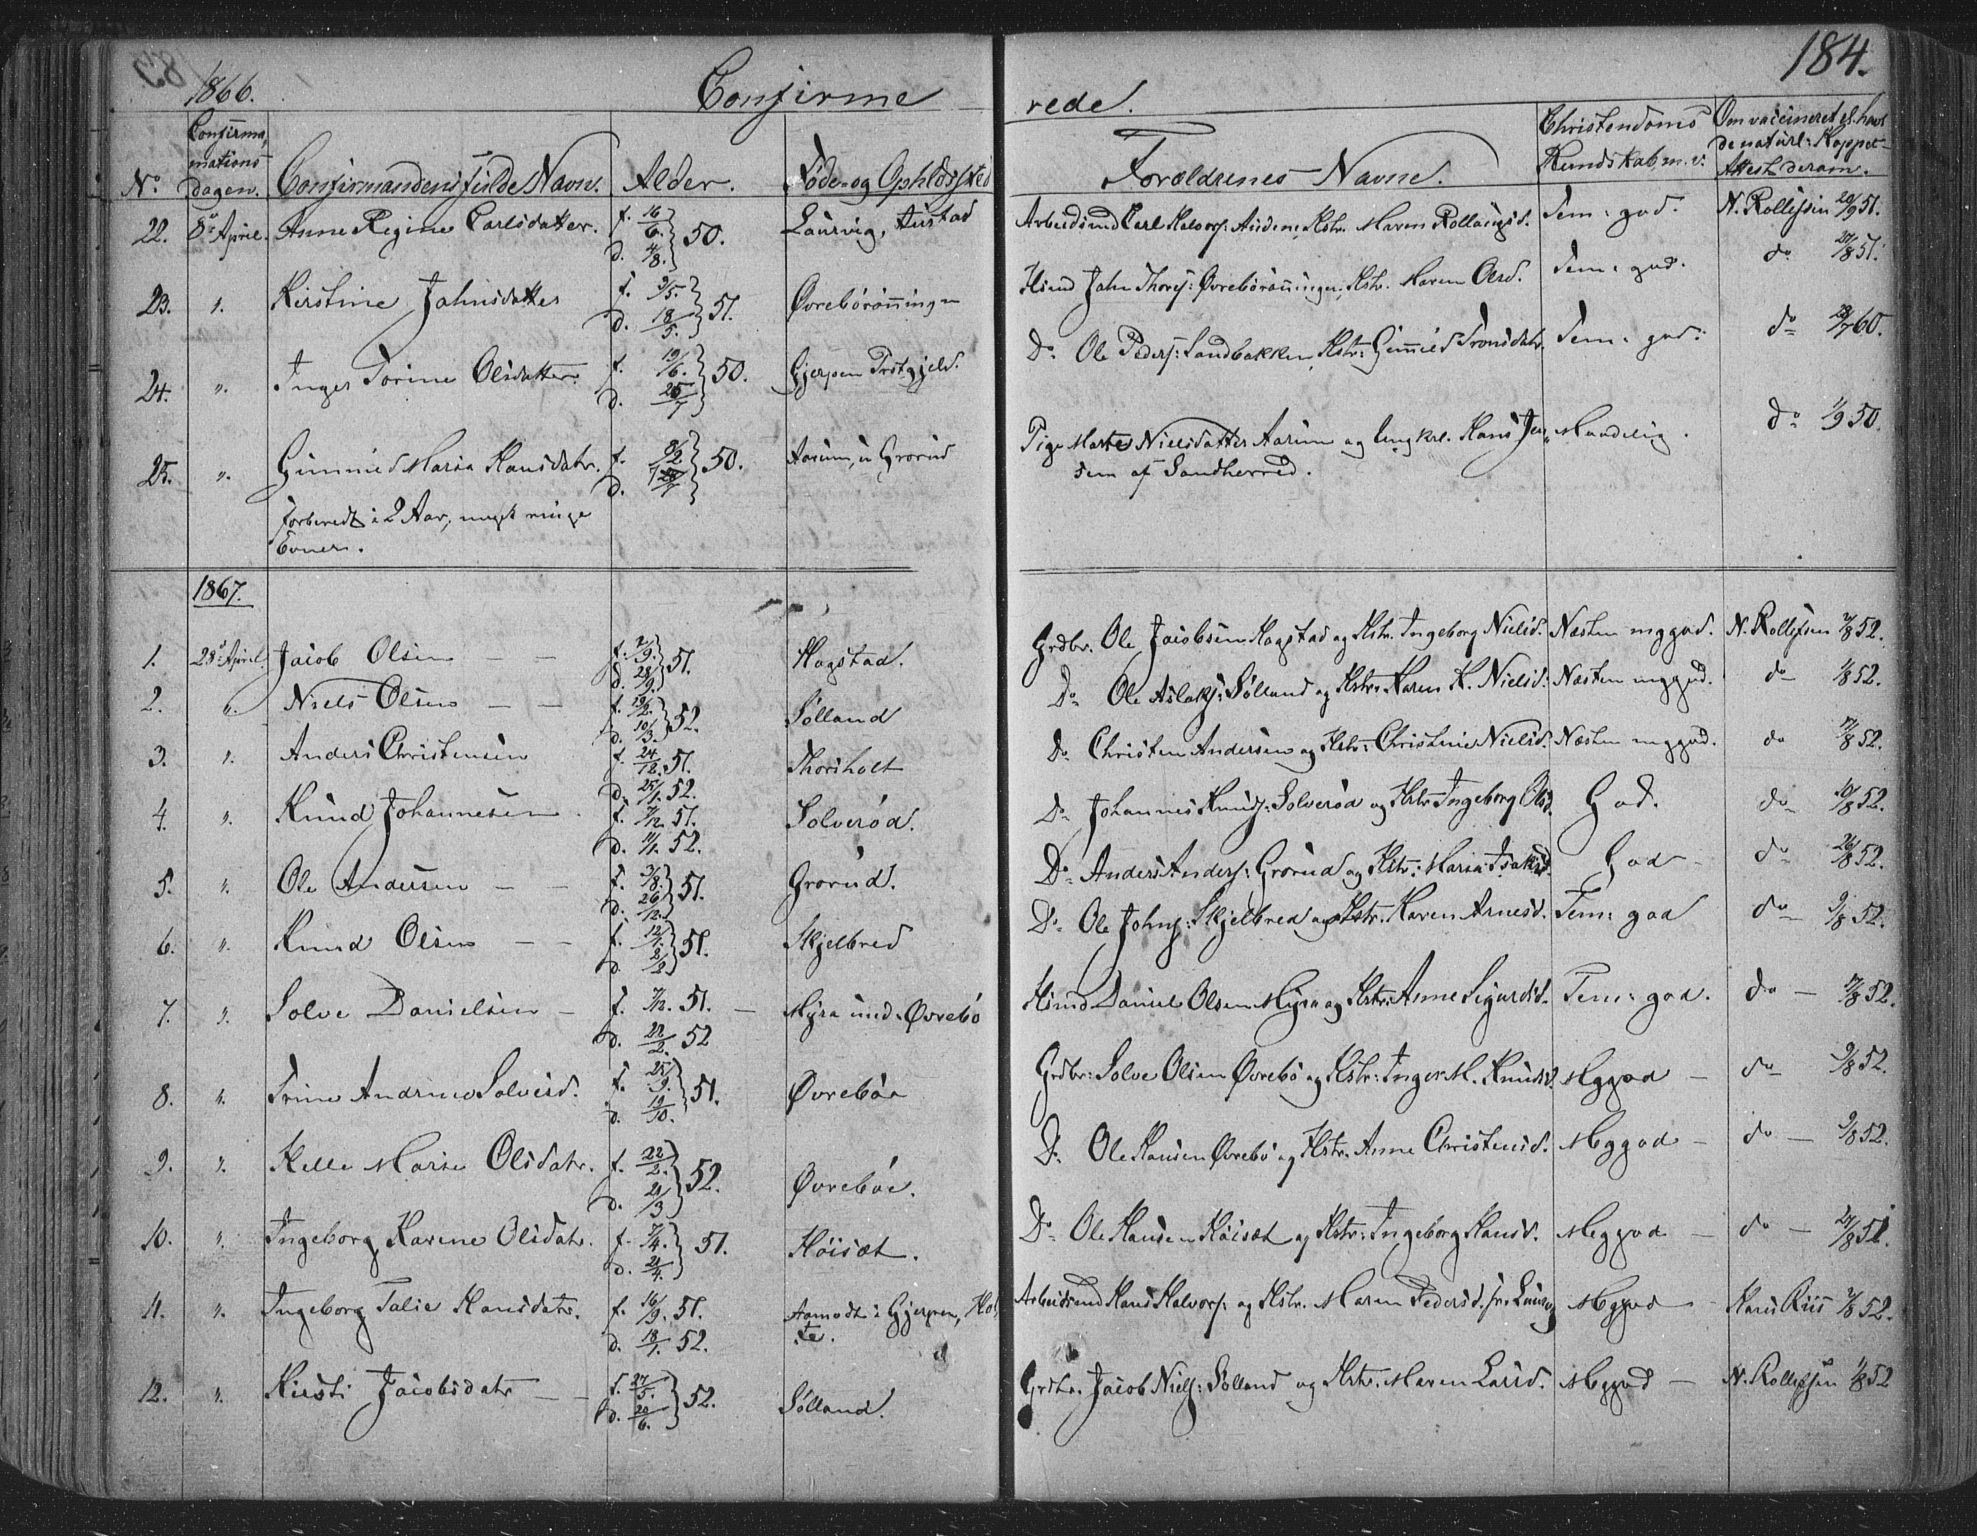 184.
1866. Confirmerede.
No. Confirmationsdagen. Confirmandens fulde Navn. Alder. Føde- og Opholdssted Forældrenes Navne. Christendoms Kundskab m. v. Om vaccineret el. havt de naturl: Kopper Attest derom.
22. 8de April. Anne Regine Carlsdatter. f. 16/6. d. 4/8. 50. Laurvig, Aüstad Arbeidsmd Carl Halvors: Hstr. Maren Tem: god. N. Rollefsen 20/9 51.
23. ". Kirstine Jahnsdatter f. 9/5. d. 18/5. 51. Øvrebörönningen Hsmd Jahn Thors: Øvrebörönningen, Hstr. Maren Olsd. Tem: god. do 27/8 51.
24. ". Inger Torine Olsdatter. f. 19/6. d. 25/7 50. Gjerpen Prstgjeld. Do Ole Peders: Sandbakken, Hstr: Gunnild Tronsdatr. Tem: god: do 28/7 60.
25. ". Gunnild Maria Hansdatr. f. 9/2. d. 50. Aarum, u Grorud Pige Marte Nielsdatter Aarum og Ungkrl. Hans Jensen af Sandherred. Maadelig. do 1/9 50.
forberedt i 2 Aar, meget ringe
Evner.
1867.
1. 28de April. Jacob Olsen — — f. 2/9. d. 28/9. 51. Hogstad. Grdbr. Ole Jacobsen Hogstad og Hstr. Ingeborg Nielsd. Næsten mggod. N. Rollefsen 2/8 52.
2. ". Niels Olsen — — f. 19/2. d. 10/3. 52. Sølland Do Ole Aslaks: Sølland og Hstr. Karen K. Nielsd: Næsten mggod. do 1/8 52.
3. ". Anders Christensen f. 24/12. 51. d. 25/1. 52. Thorsholt Do Christen Andersen og Hstr: Christine Nielsd. Næsten mggod. do 17/8 52.
4. ". Knud Johannesen f. 7/12. 51. d. 11/1. 52. Solverød. Do Johannes Knuds: Solverød og Hstr Ingeborg Olsd. God. do 10/8 52.
5. ". Ole Andersen — — f. 3/8. d. 26/12. 51. Grorud. Do Anders Anders: Grorud og Hstr: Maria Isaksd. God — do 26/8 52.
6. ". Knud Olsen — — f. 12/7. d. 8/8. 51. Skjelbred Do Ole Johns: Skjelbred og Hstr. Karen Arnesd. Tem: god do 9/8 52.
7. ". Solve Danielsen — f. 7/12. 51. — d. 22/2. 52 Myra und. Øvrebö Hsmd Daniel Olsen Myra og Hstr: Anne Sigurdsd. Tem: god. do — 17/8 52.
8. ". Trine Andrine Solvesd. f. 25/9. d. 19/10. 51. Øvreböe Grdbr: Solve Olsen Øvrebö og Hstr: Inger M. Knudsd. Mggod — do 9/8 52.
9. ". Helle Marie Olsdatr. f. 22/2. d. 21/3 52. Øvreböe. Do Ole Hansen Øvrebö og Hstr. Anne Christensd. Meggod — do — 9/8 52.
10. ". Ingeborg Karine Olsdatr. f. 7/4. d. 21/4. 51. Höisæt. Do Ole Hansen Höisæt og Hstr: Ingeborg Hansd. Meggod — do — 27/8 51.
11. ". Ingeborg Talie Hansdatr. f. 16/9. 51. d. 18/1. 52. Aamodt i Gjerpen, Holte. Arbeidsmd Hans Halvors: og Hstr. Maren Pedersd. fra Mggod — Hans Riis 2/8 52.
12. ". Kirsti Jacobsdatr — — f. 27/5. d. 20/6. 52. Sølland. Grdbr. Jacob Niels: Sølland og Hstr. Maren Larsd. Meggod — N. Rollefsen 1/8 52